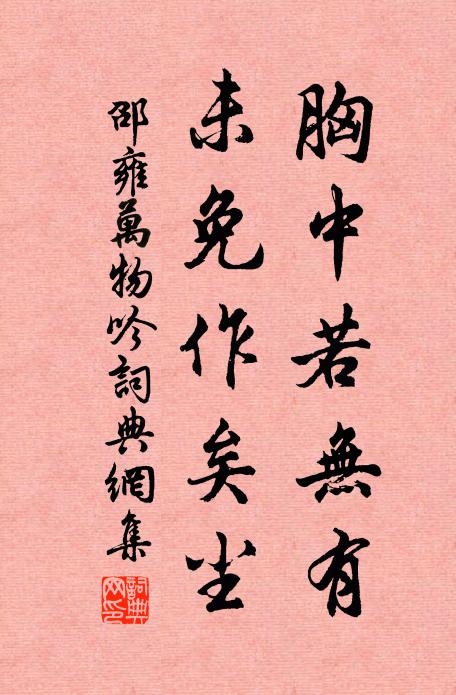 胸中若無有
未免作矣尘
邵雍萬物吟詞典網集
詞典网印